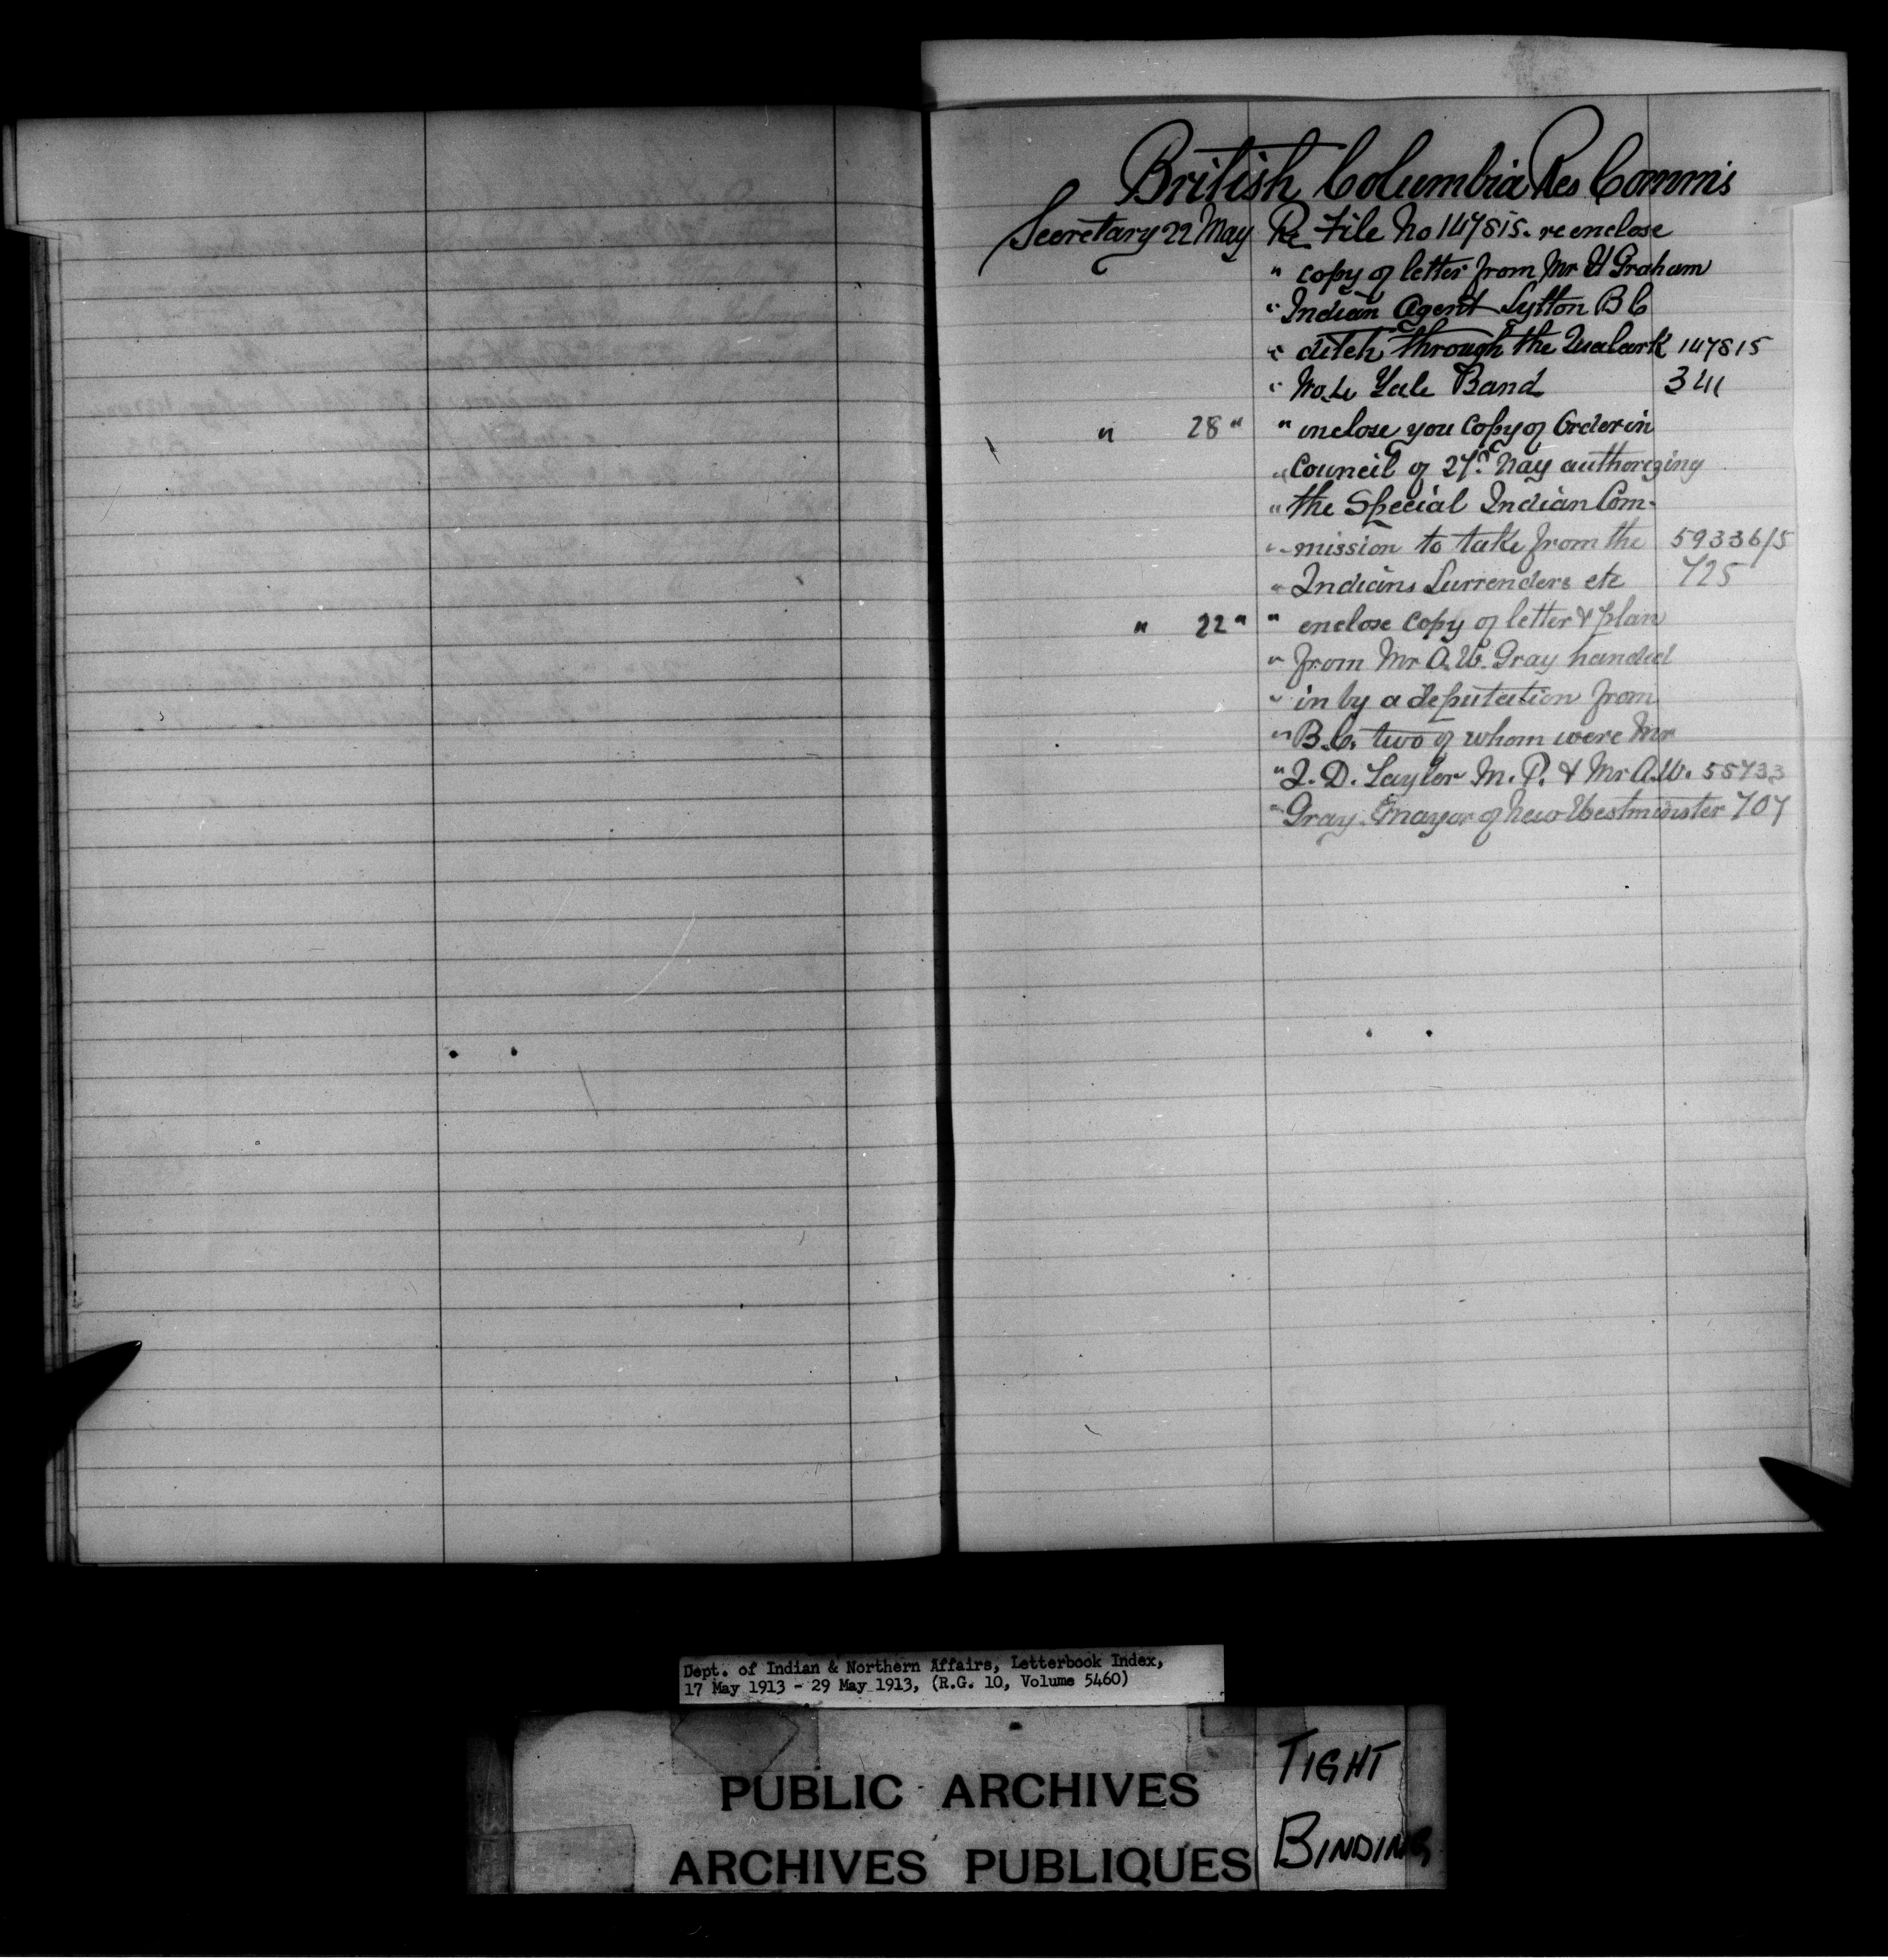 British Columbia Res Comm's
Secretary 22 May Re File No 147815. re enclose
" copy of letter from Mr H Graham
" Indian Agent Lytton B C
" ditch through the 147815
" No. Yale Band 341
" 28 " " enclose you Copy of Order in
" Council of 27th May authorizing
" the Special Indian Com-
" mission to take from the 59336/5
" Indians Surrenders etc 725
" 22 " " enclose copy of letter & plan
" from Mr A. W. Gray handed
" in by a deputation from
" B. C. two of whom were Mr
" J. D. Taylor M. P. & Mr A. W. 55733
" Gray. mayor of New Westminster 707
Dept. of Indian & Northern Affairs, Letterbook Index,
17 May 1913 - 29 May 1913, (R.G. 10, Volume 5460)
PUBLIC ARCHIVES
ARCHIVES PUBLIQUES
TIGHT
BINDING